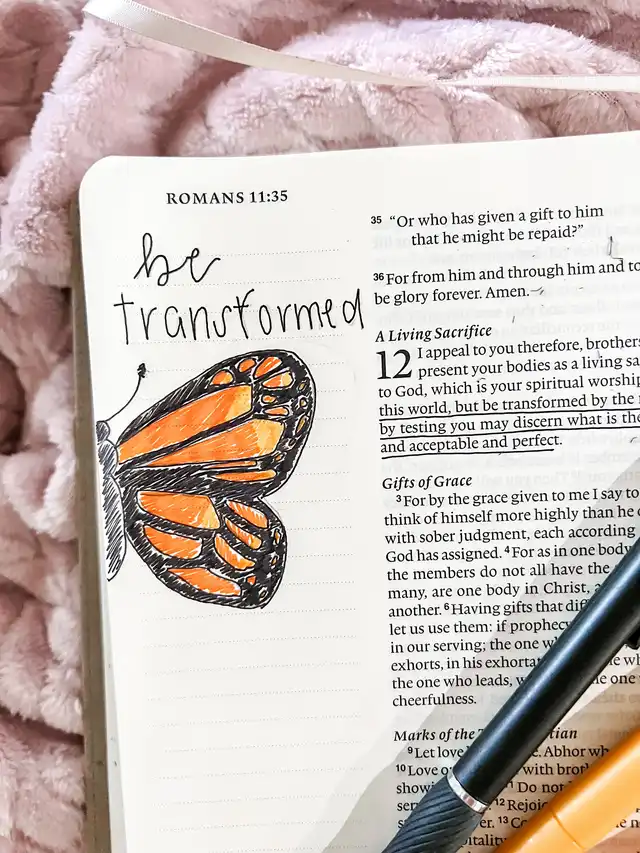 ROMANS 11:35
be
transformed
35 “Or who has given a gift to him
that he might be repaid?”
36 For from him and through him and to
be glory forever. Amen.
A Living Sacrifice
12 I appeal to you therefore, brothers
present your bodies as a living
to God, which is your spiritual worship
this world, but be transformed by the
by testing you may discern what is the
and acceptable and perfect.
Gifts of Grace
3 For by the grace given to me I say to
think of himself more highly than he
with sober judgment, each according
God has assigned. 4 For as in one body
the members do not all have the
many, are one body in Christ,
another. 6 Having gifts that
let us use them: if prophecy
in our serving; the one
exhorts, in his
the one who leads, one
cheerfulness.
Marks of the
9 Let Abhor
10 Love with
Do not
12
13